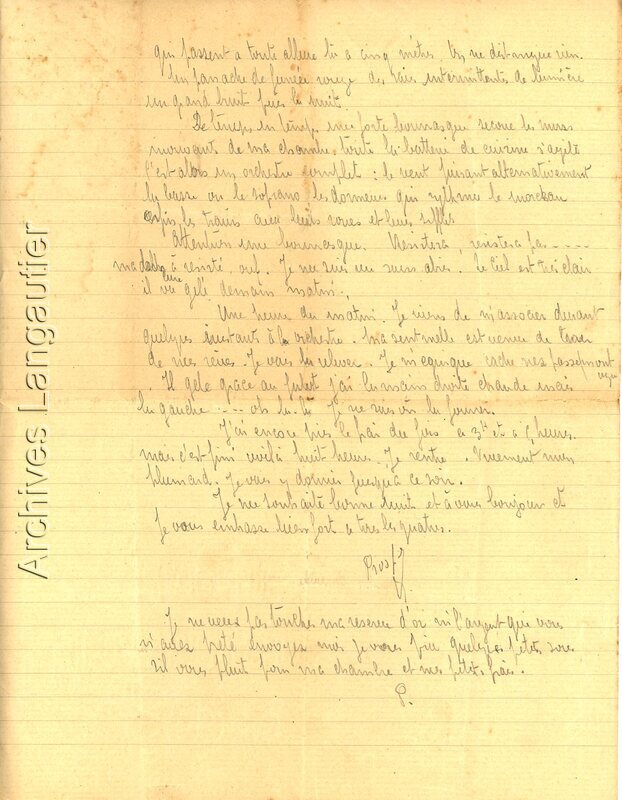 qui passent a toute allure là a cinq mètres ne dérange rien.
Un panache de fumée rouge des raies intermittentes de lumière
un grand bruit puis la nuit.
De temps en temps une forte bourrasque secoue les murs
mouvants de ma chambre, toute la batterie de cuisine s'agite
C'est alors un orchestre complet : le vent faisant alternativement
la basse ou le soprano, les dormeurs qui rythme le morceau
enfin les trains avec leurs roues et leurs sifflets
Attention une bourrasque. Résistera, résistera pas - - - -
ma à résisté, ouf. Je ne suis un sans abri. Le Ciel est très clair
il va gelé demain matin.
Une heure du matin. Je viens de m'associer durant
quelques instants à l'orchestre. Ma sentinelle est venue de
de mes rêves. Je vais la relever. Je m'équipe cache nez passe
. Il gèle grace au j'ai la main droite chaude mais
la gauche - - - - oh la là Je ne la
J'ai encore pris le fois a 3h et a 6 heures.
mais c'est fini voilà huit heures. Je rentre. Vivement mon
plumard. Je vais y dormir jusqu'à ce soir.
Je me souhaite bonne nuit et à vous bonjour et
Je vous embrasse bien fort a tous les quatres.
Je ne veux pas toucher ma reserve d'or ni l'argent que vous
m'avez prêté envoyez moi je vous prie quelques petits sous
s'il vous plait pour ma chambre et mes petits frais.
P.
Archives Langautier